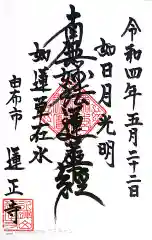 令和四年五月二十二日
如日月光明
南無妙法蓮華経
如蓮華在水
由布市
蓮正寺